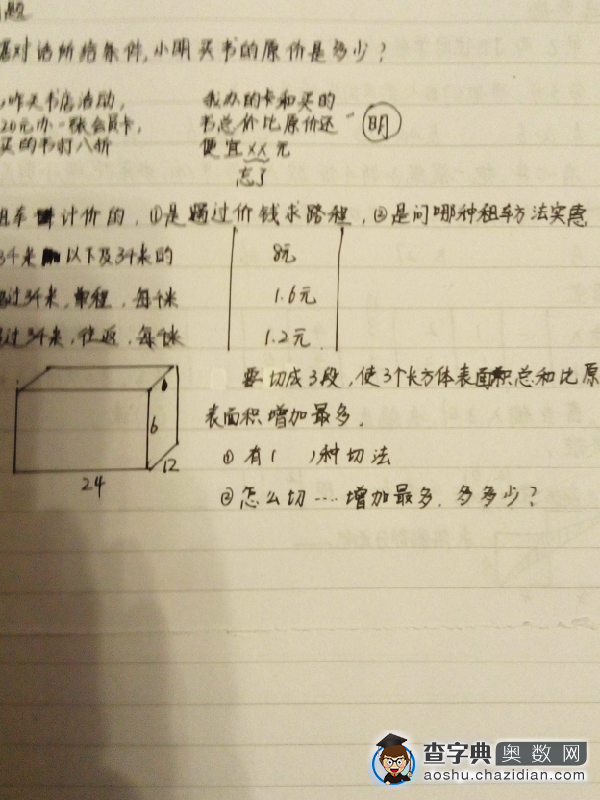 题
对话所给条件,小明买书的原价是多少?
昨天书店活动,
20元办一张会员卡,
买的书打八折
我办的卡和买的
书总价比原价还
便宜xx元
忘了
明
租车 计价的,①是通过价钱求路程,②是问哪种租车方法实惠
3千米 以下及3千米的 8元
过3千米,单程,每千米 1.6元
过3千米,往返,每千米 1.2元
要切成3段,使3个长方体表面积总和比原
表面积增加最多.
①有( )种切法
②怎么切……增加最多.多多少?
6
12
24
查字典奥数网
aoshu.chazidian.com